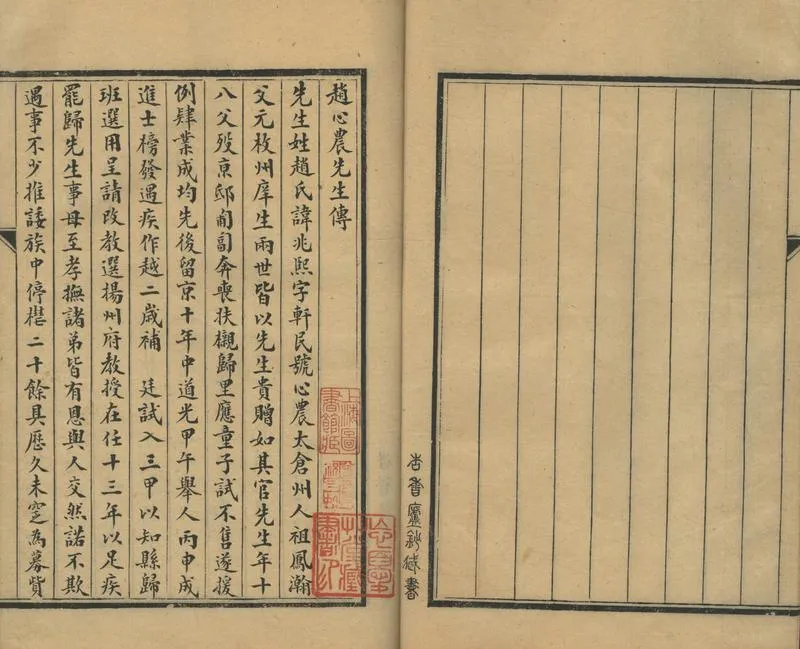 廔鈔藏書
趙心農先生傳
先生姓趙氏諱兆熙字軒民號心農太倉州人祖鳳瀚
父元枚州庠生兩世皆以先生貴贈如其官先生年十
八父歿京邸匍匐奔喪扶櫬歸里應童子試不售遂援
例肄業成均先後留京十年中道光甲午舉人丙申成
進士榜發遇疾作越二歲補　廷試入三甲以知縣歸
班選用呈請改教選揚州府教授在任十三年以足疾
罷歸先生事母至孝撫諸弟皆有恩與人交然諾不欺
遇事不少推諉族中停櫬二十餘具歷久未窆為募貲
上海圖
書館藏